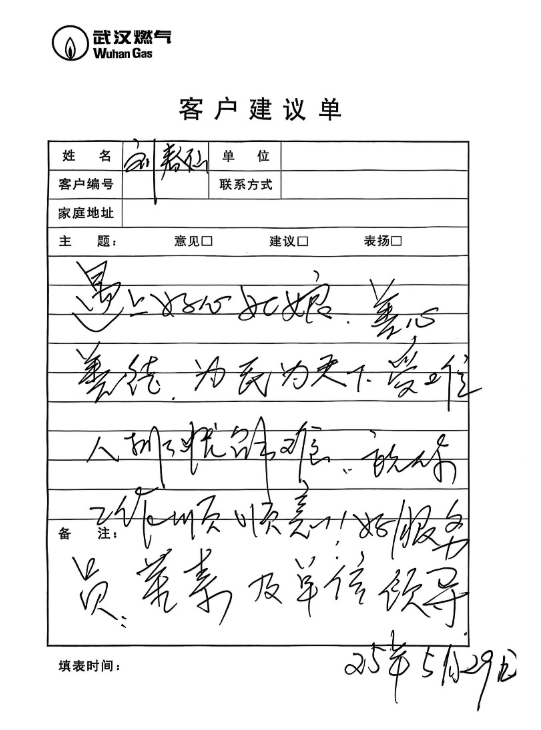 武汉燃气
Wuhan Gas
客户建议单
姓 名 刘春仙 单 位
客户编号 联系方式
家庭地址
主 题: 意见□ 建议□ 表扬□
遇上好心姑娘、善心
善德、为民为天下、爱工作
人 排忧解难
工作顺顺意!!好服务
备 注:
员: 董素 及单位领导
填表时间: 25年5月29日